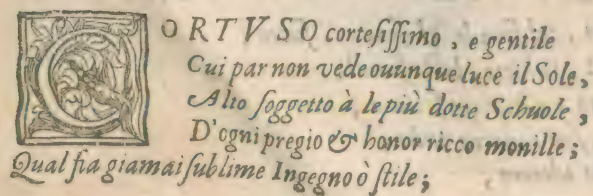 CORTVSO cortesissimo, e gentile
Cui par non vede ouunque luce il Sole,
Alto soggetto à le più dotte Schuole,
D'ogni pregio & honor ricco monille;
Qual fia giamai sublime Ingegno ò stile;